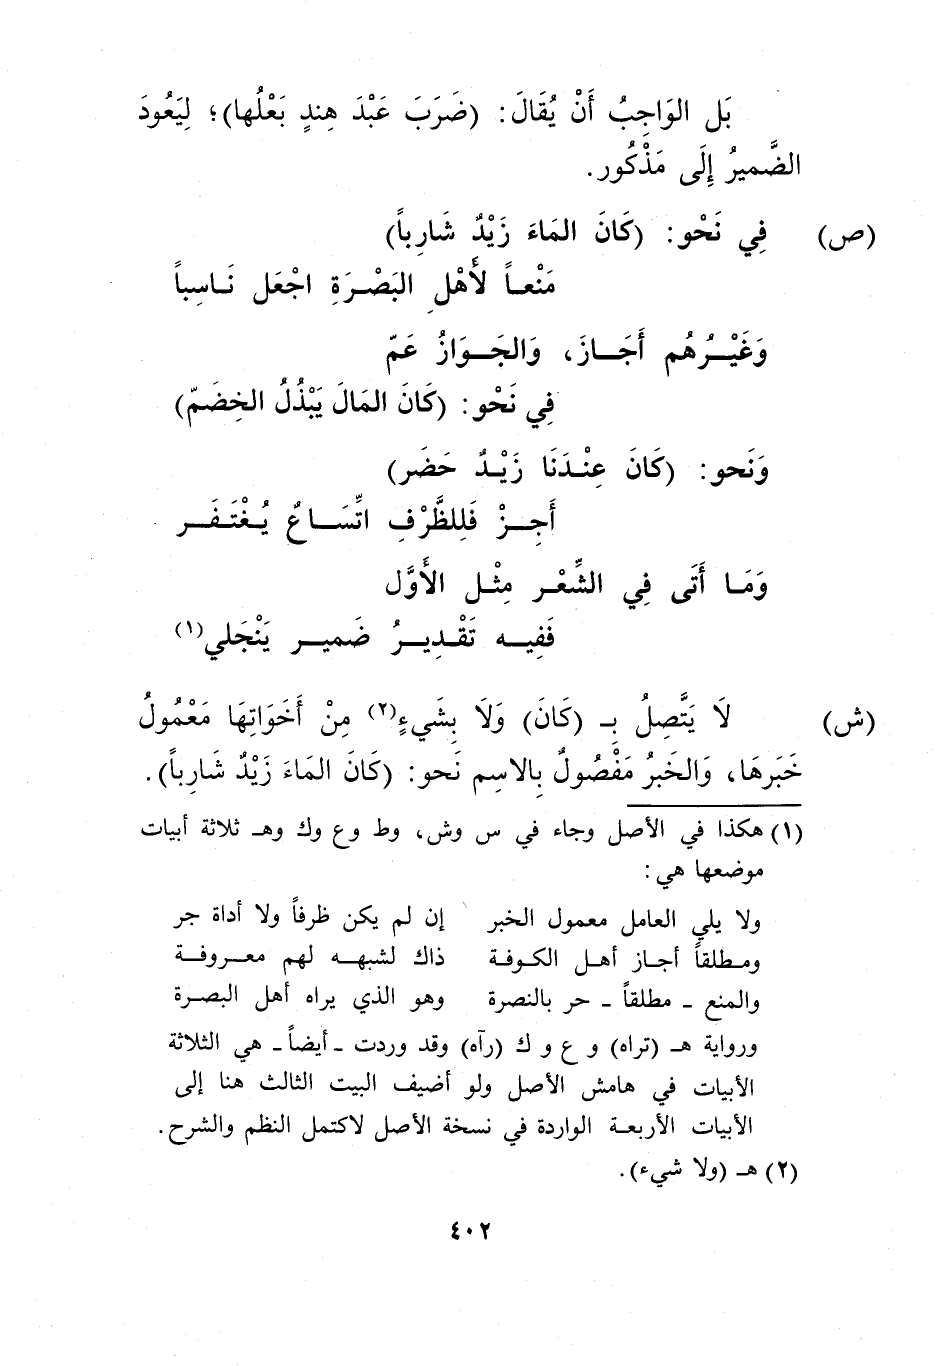 بَل الوَاجِبُ أَنْ يُقَالَ: (ضَرَبَ عَبْدَ هِندٍ بَعْلُها)؛ لِيَعُودَ
الضَّميرُ إِلَى مَذْكُور.
(ص) فِي نَحْو: (كَانَ المَاءَ زَيْدٌ شَارِباً)
مَنْعاً لأَهْلِ البَصْرَةِ اجْعَل نَاسِباً
وَغَيْرُهُم أَجَازَ، وَالجَوَازُ عَمّ
فِي نَحْو: (كَانَ المَالَ يَبْذُلُ الخِضَمّ)
وَنَحو: (كَانَ عِنْدَنَا زَيْدٌ حَضَر)
أَجِزْ فَلِلظَّرْفِ اتِّسَاعٌ يُغْتَفَر
وَمَا أَتَى فِي الشِّعْرِ مِثْلِ الأَوَّل
فَفِيه تَقْدِيرُ ضَمير يَنْجَلي(١)
(ش) لَا يَتَّصِلُ بـ (كَانَ) وَلَا بِشَيءٍ(٢) مِنْ أَخَوَاتِهَا مَعْمُولُ
خَبَرِهَا، وَالخَبرُ مَفْصُولٌ بِالاسِم نَحو: (كَانَ المَاءَ زَيْدٌ شَارِباً).
(١) هكذا في الأصل وجاء في س وش، وط وع وك وهـ ثلاثة أبيات
موضعها هي:
ولا يلي العامل معمول الخبر إن لم يكن ظرفاً ولا أداة جر
ومطلقاً أجاز أهل الكوفة ذاك لشبهه لهم معروفة
والمنع ـ مطلقاً ـ حر بالنصرة وهو الذي يراه أهل البصرة
ورواية هـ (تراه) و ع و ك (رآه) وقد وردت ـ أيضاً ـ هي الثلاثة
الأبيات في هامش الأصل ولو أضيف البيت الثالث هنا إلى
الأبيات الأربعة الواردة في نسخة الأصل لاكتمل النظم والشرح.
(٢) هـ (ولا شيء).
٤٠٢